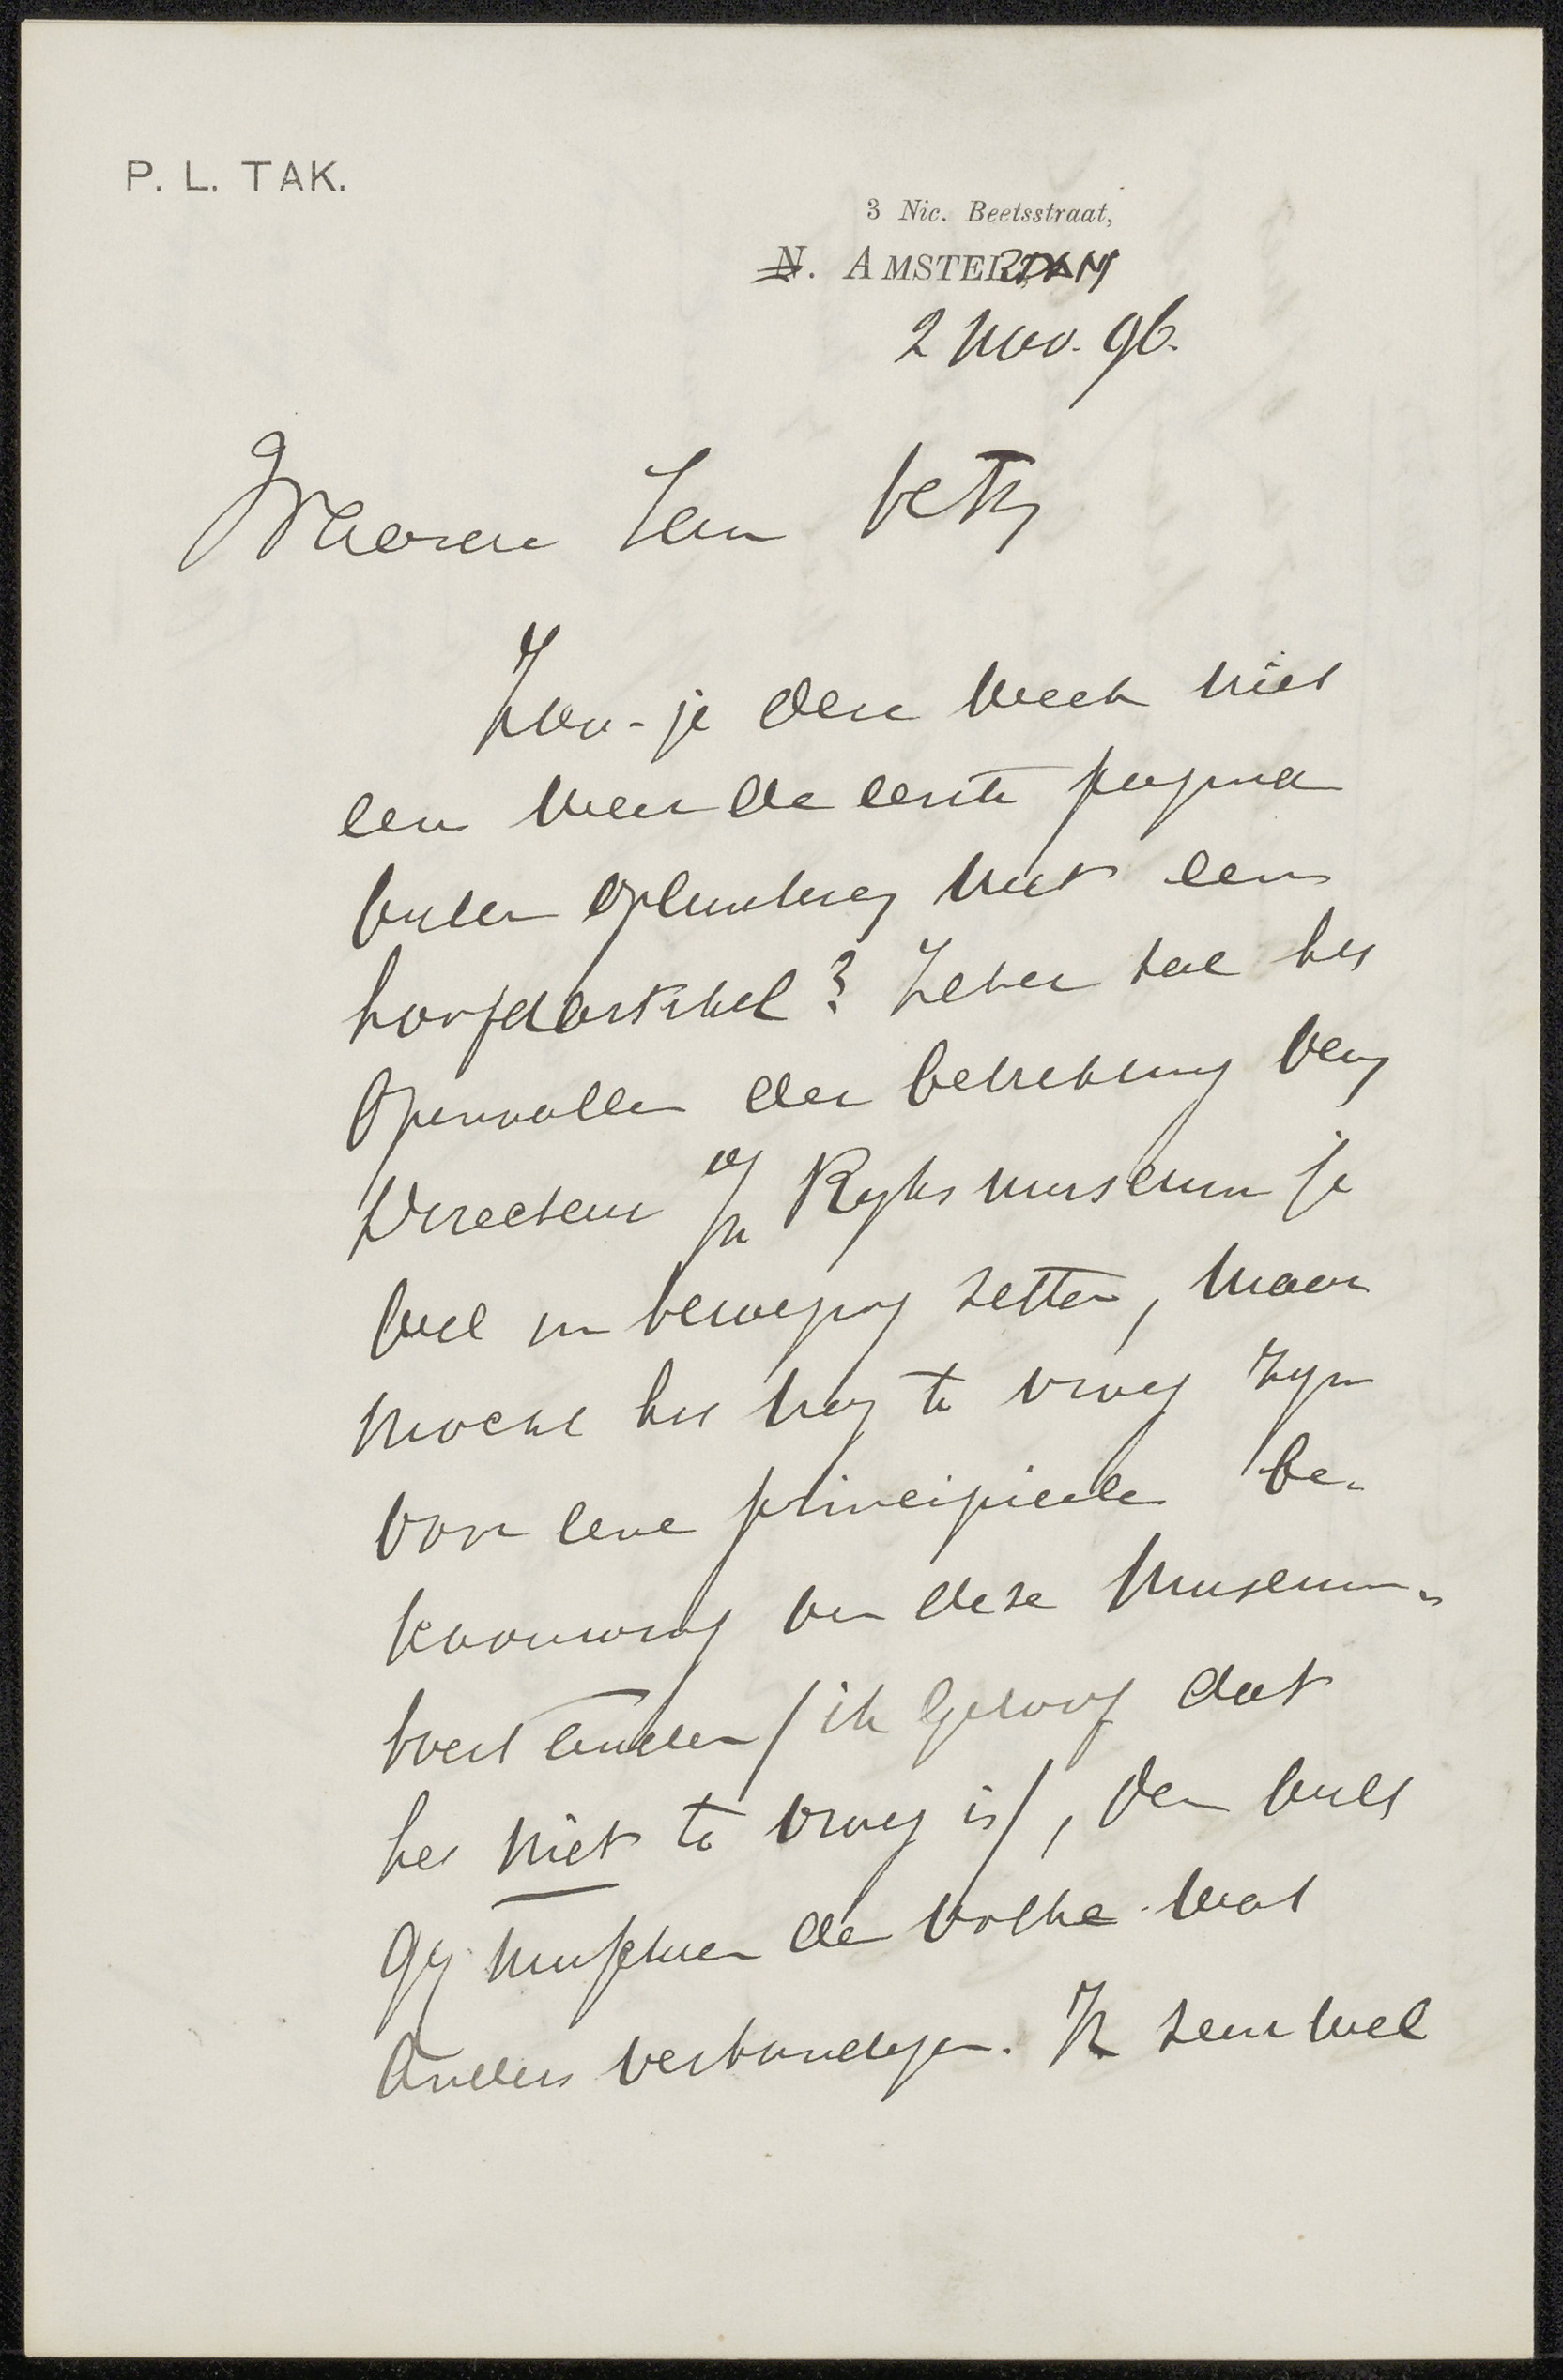 P. L. TAK.
3 Nic. Beetsstraat,
N. AMSTERDAM
2 Nov. 96.
Waarde Jan Veth
Zou-je deze week niet
een weer de eerste pagina
willen met een
hoofdartikel? Zeker zal het
openvallen der betrekking van
Directeur v/h Ryksmuseum je
wel in beweging zetten, maar
mocht het nog te vroeg zyn
voor eene principieele be-
schouwing van deze Museum-
toestanden / ik geloof dat
het niet te vroeg is /, dan wilt
gy misschien de volke wat
anders verkondigen. Ik zou wel